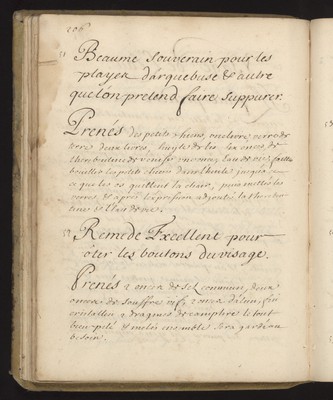 Beaume souverain pour les
playes d'arquebuse & autre
que l'on pretend faire suppurer.
Prenés des petits chiens, une livre, verre de
terre deux livres, huyle de lis
therebentine de venise
bouilles les petits chiens dans l'huile jusques
ce que les os quittent la chair, puis mettes les
verres, & apres l'expression adjoutés la thereben-
tine & l'eau de vie.
Remede Excellent pour
ôter les boutons du visage.
Prenés 2 onces de sel commun, deux
onces de souffre vif, 2 onces d'alun,
cristallin 4 dragmes de camphre le tout
bien pilé & meslés ensemble sera gardé au
besoin.